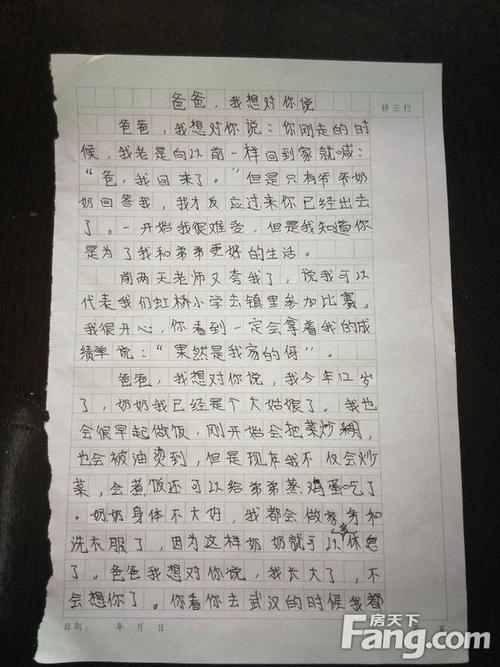 爸爸，我想对你说
修正栏
爸爸，我想对你说：你刚走的时
候，我老是向以前一样回到家就喊：
“爸，我回来了。”但是只有爷爷奶
奶回答我，我才反应过来你已经出去
了。一开始我很难受，但是我知道你
是为了我和弟弟更好的生活。
前两天老师又夸我了，说我可以
代表我们虹林小学去镇里参加比赛。
我很开心，你看到一定会拿着我的成
绩单说：“果然是我家的伢”。
爸爸，我想对你说，我今年12岁
了，奶奶我已经是个大姑娘了。我也
会很早起做饭，刚开始会把菜炒糊，
也会被油烫到，但是现在我不仅会炒
菜，会煮饭还可以给弟弟蒸鸡蛋吃了
。奶奶身体不大好，我都会做家务和
洗衣服了，因为这样奶奶就可以多休息
了。爸爸我想对你说，我长大了，不
会想你了。你看你去武汉的时候我都
日期： 年 月 日
房天下
Fang.com